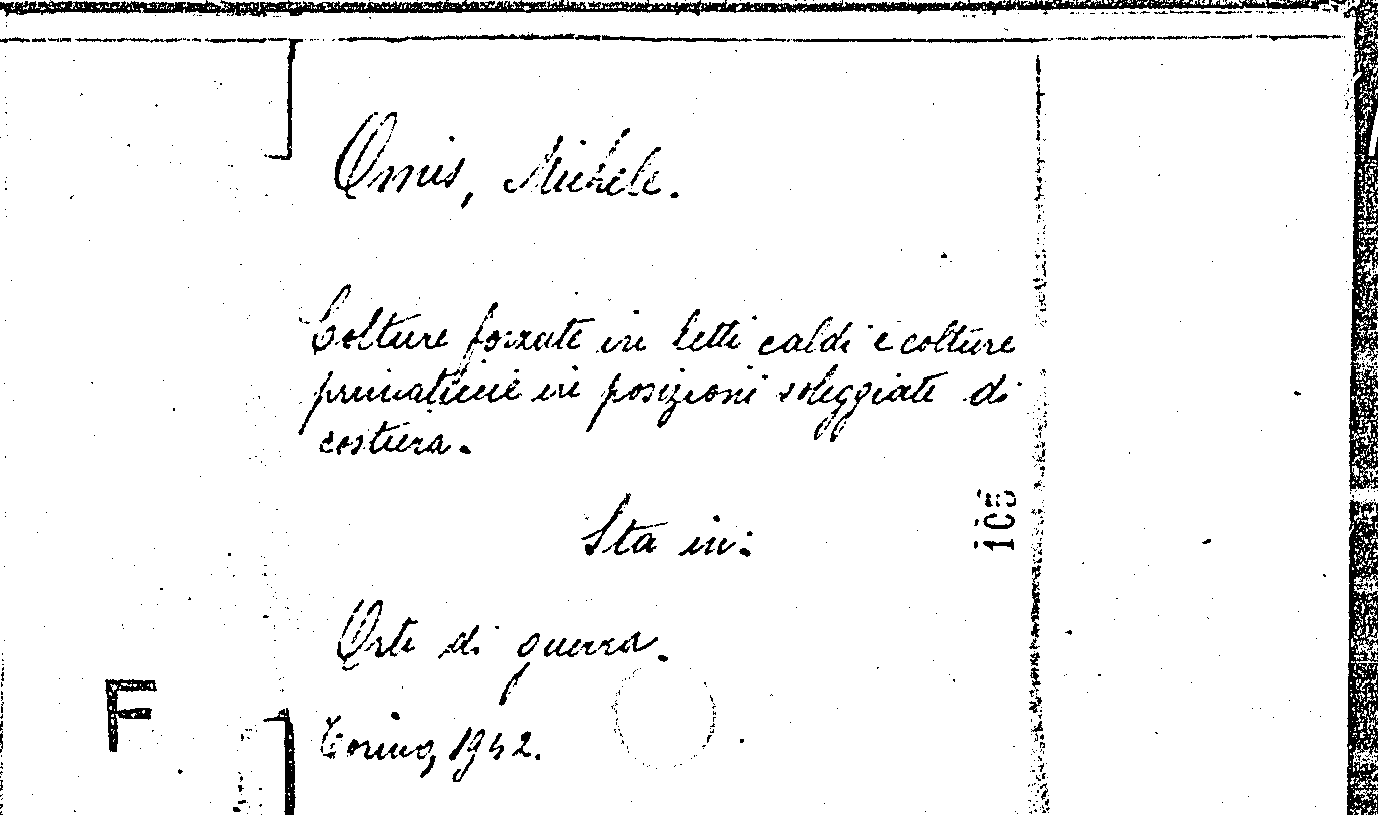 Omis, Michele.
Colture forzate in letti caldi e colture
primaticcie in posizioni soleggiate di
costiera.
Sta in:
105
Orti di guerra.
F
Torino, 1942.